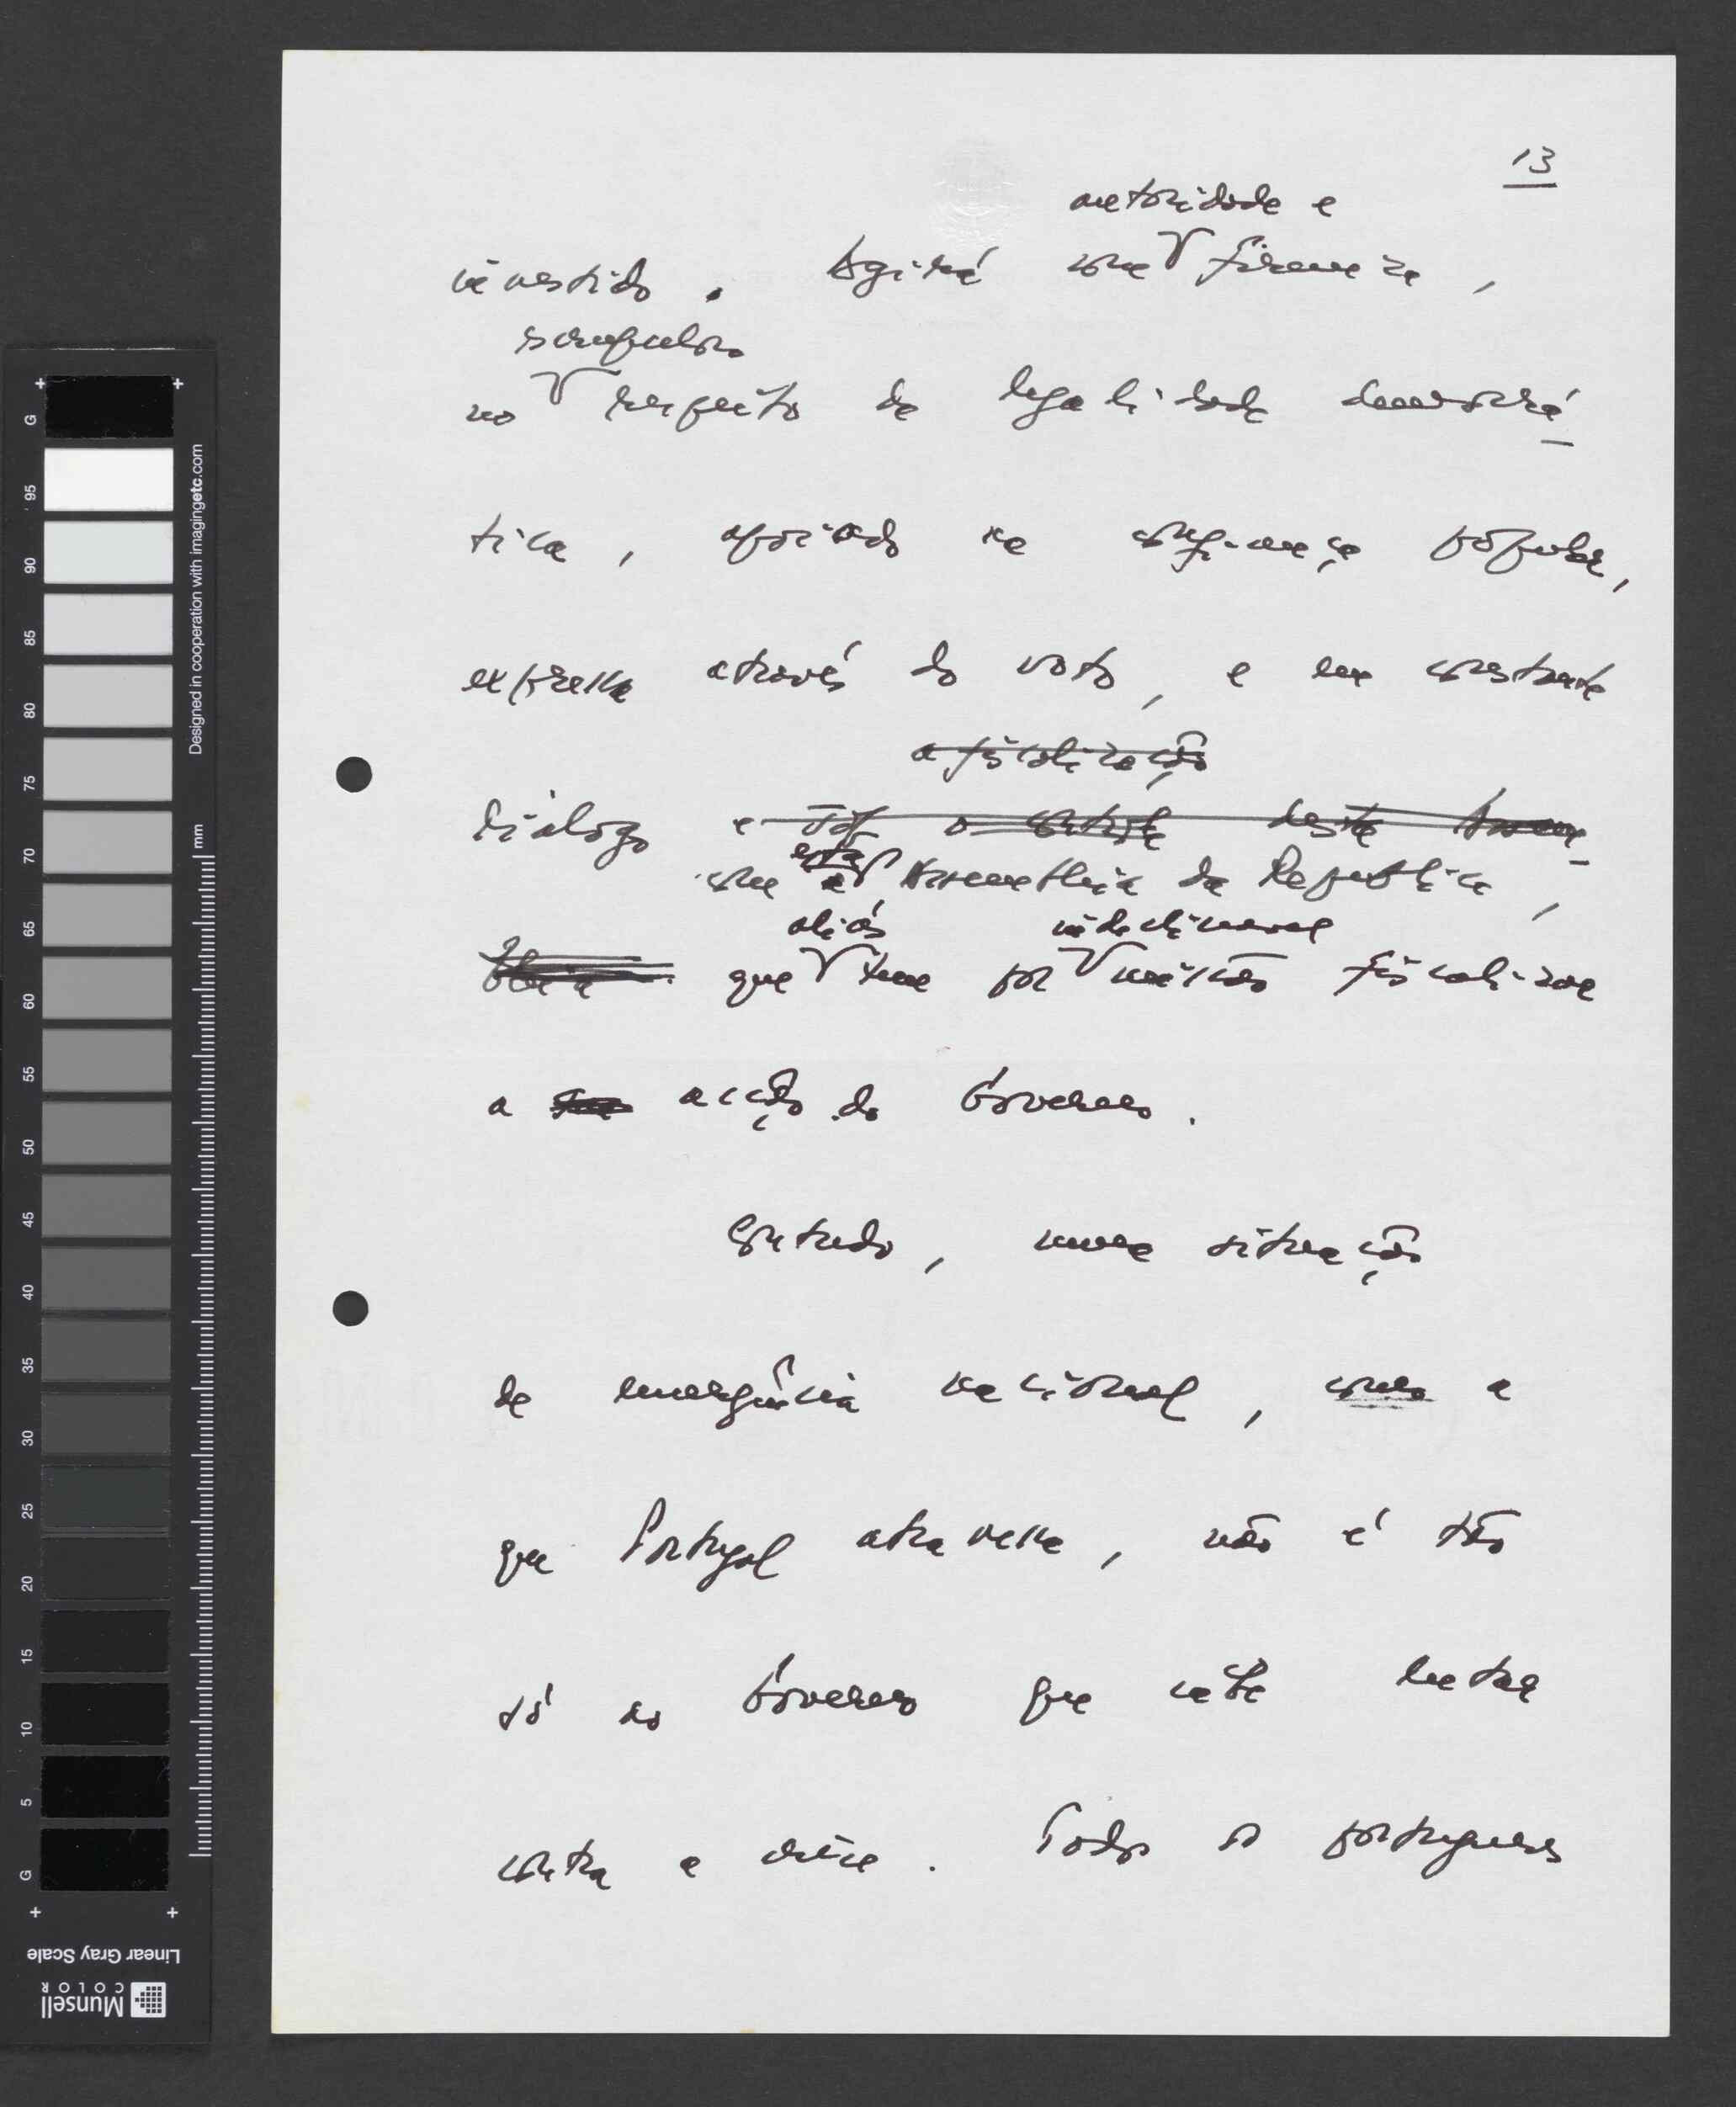 13
autoridade e
investido. Agirá com firmeza,
escrupuloso
no respeito da legalidade democrá-
tica, apoiado na confiança popular,
expressa através do voto, e em constante
a fiscalização
diálogo e sob o controle desta Assem-
com esta Assembleia da República,
aliás indeclinável
bleia que tem por missão fiscalizar
a acção do Governo.
Contudo, numa situação
de emergência nacional, como a
que Portugal atravessa, não é tão
só ao Governo que cabe lutar
contra a crise. Todos os portugueses
G 95 90 85 80 75 70 65 60 55 50 45 40 35 30 25 20 15 10 5 G
Designed in cooperation with imagingetc.com
mm
Linear Gray Scale
Munsell
COLOR